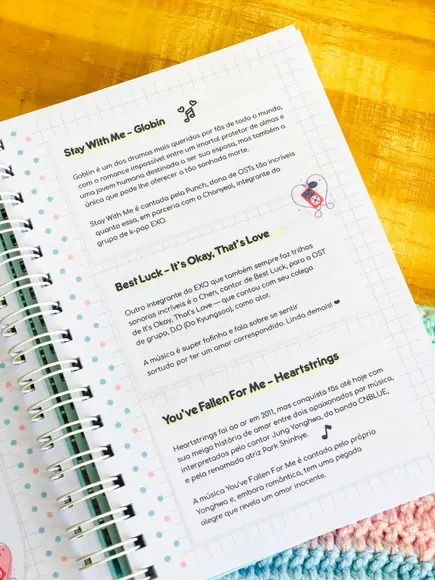 Stay With Me - Globin
Goblin é um dos dramas mais queridos por fãs de todo o mundo,
com o romance impossível entre um imortal protetor de almas e
uma jovem humana destinada a ser sua esposa, mas também a
única que pode lhe oferecer a tão sonhada morte.
Stay With Me é cantada pela Punch, dona de OSTs tão incríveis
quanto essa, em parceria com o Chanyeol, integrante do
grupo de k-pop EXO.
Best Luck - It's Okay, That's Love
Outro integrante do EXO que também sempre faz trilhas
sonoras incríveis é o Chen, cantor de Best Luck, para a OST
de It's Okay, That's Love — que contou com seu colega
de grupo, D.O (Do Kyungsoo), como ator.
A música é super fofinha e fala sobre se sentir
sortudo por ter um amor correspondido. Linda demais! ❤
You've Fallen For Me - Heartstrings
Heartstrings foi ao ar em 2011, mas conquista fãs até hoje com
sua meiga história de amor entre dois apaixonados por música,
interpretados pelo cantor Jung Yonghwa, da banda CNBLUE,
e pela renomada atriz Park Shinhye.
A música You've Fallen For Me é cantada pelo próprio
Yonghwa e, embora romântica, tem uma pegada
alegre que revela um amor inocente.